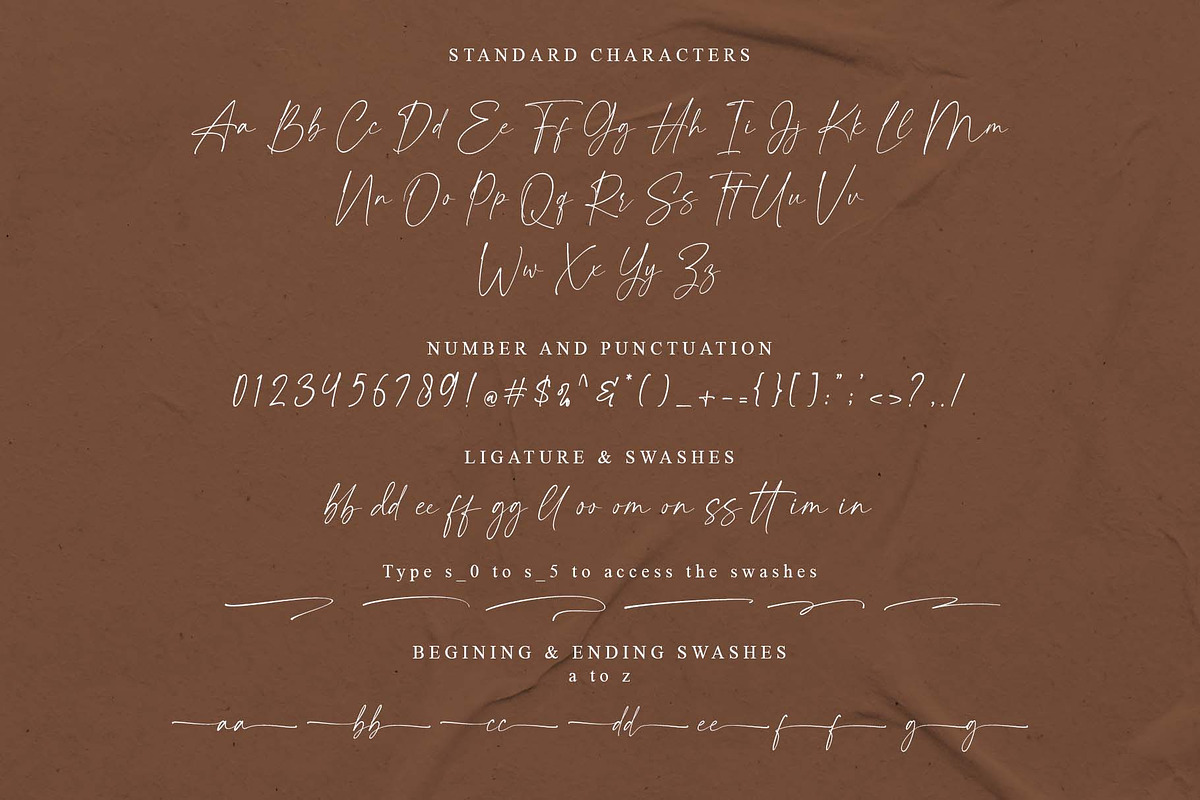 STANDARD CHARACTERS
Aa Bb Cc Dd Ee Ff Gg Hh Ii Jj Kk Ll Mm
Nn Oo Pp Qq Rr Ss Tt Uu Vv
Ww Xx Yy Zz
NUMBER AND PUNCTUATION
0123456789!@#$%^&*()_+-={}[]:";'<>?,./
LIGATURE & SWASHES
bb dd ee ff gg ll oo om on ss tt im in
Type s_0 to s_5 to access the swashes
BEGINING & ENDING SWASHES
a to z
aa bb cc dd ee f f g g